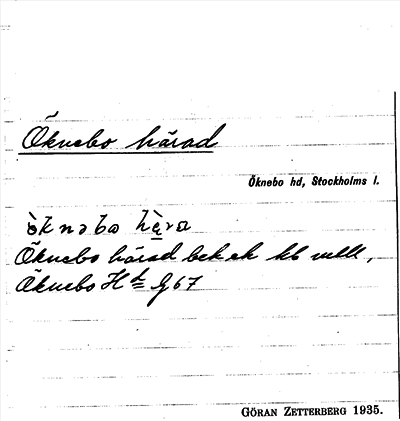 Öknebo härad
Öknebo hd, Stockholms l.
Öknebo härad bek ek kb
Öknebo Hd G67
GÖRAN ZETTERBERG 1935.